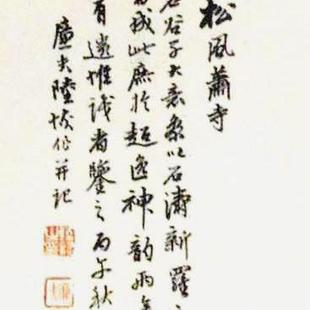 松風蕭寺
石谷子大意參以石濤新羅
成此庶於超逸神韵兩
有遺惟識者鑒之丙午秋
廬夫陸恢作并記